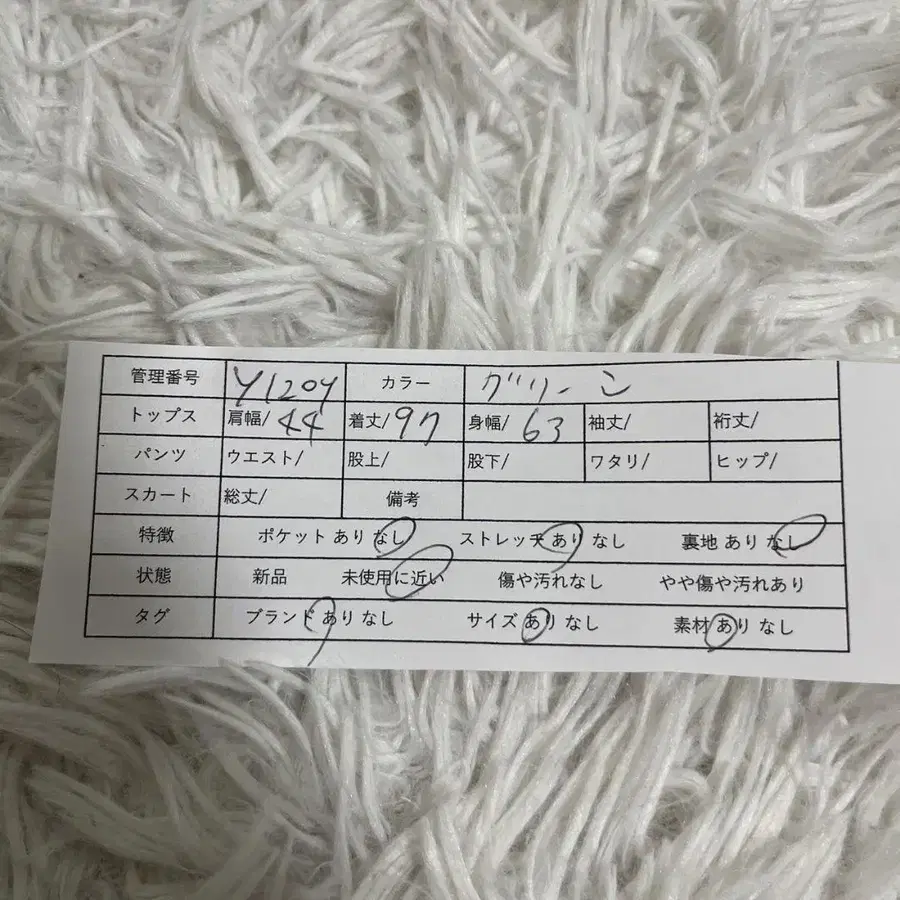 管理番号 Y1204 カラー グリーン
トップス 肩幅/ 44 着丈/ 97 身幅/ 63 袖丈/ 裄丈/
パンツ ウエスト/ 股上/ 股下/ ワタリ/ ヒップ/
スカート 総丈/ 備考
特徴 ポケット あり なし ストレッチ あり なし 裏地 あり なし
状態 新品 未使用に近い 傷や汚れなし やや傷や汚れあり
タグ ブランド あり なし サイズ あり なし 素材 あり なし